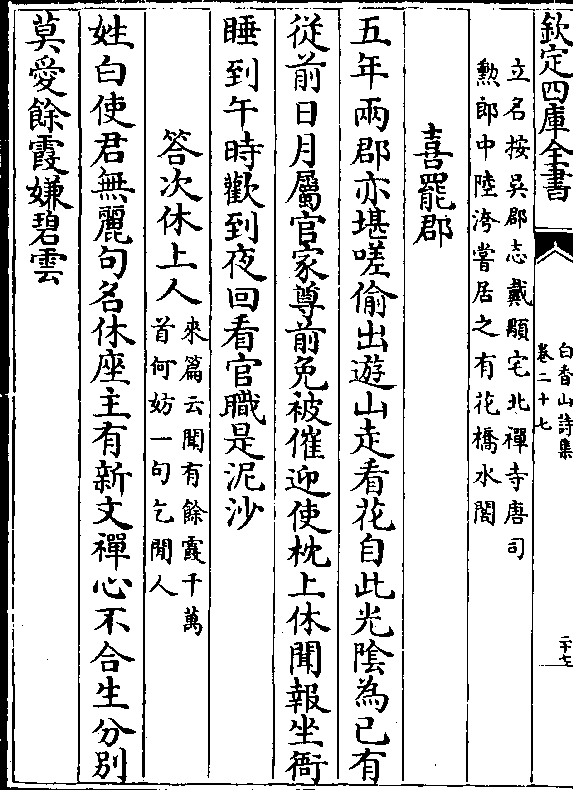 欽定四庫全書
白香山詩集
卷二十七
二十七
立名按吳郡志戴顒宅北禪寺唐司
勲郎中陸洿嘗居之有花橋水閣
喜罷郡
五年兩郡亦堪嗟偷出遊山走看花自此光陰為已有
從前日月屬官家尊前免被催迎使枕上休聞報坐衙
睡到午時歡到夜回看官職是泥沙
答次休上人
來篇云聞有餘霞千萬
首何妨一句乞閒人
姓白使君無麗句名休座主有新文禪心不合生分别
莫愛餘霞嫌碧雲